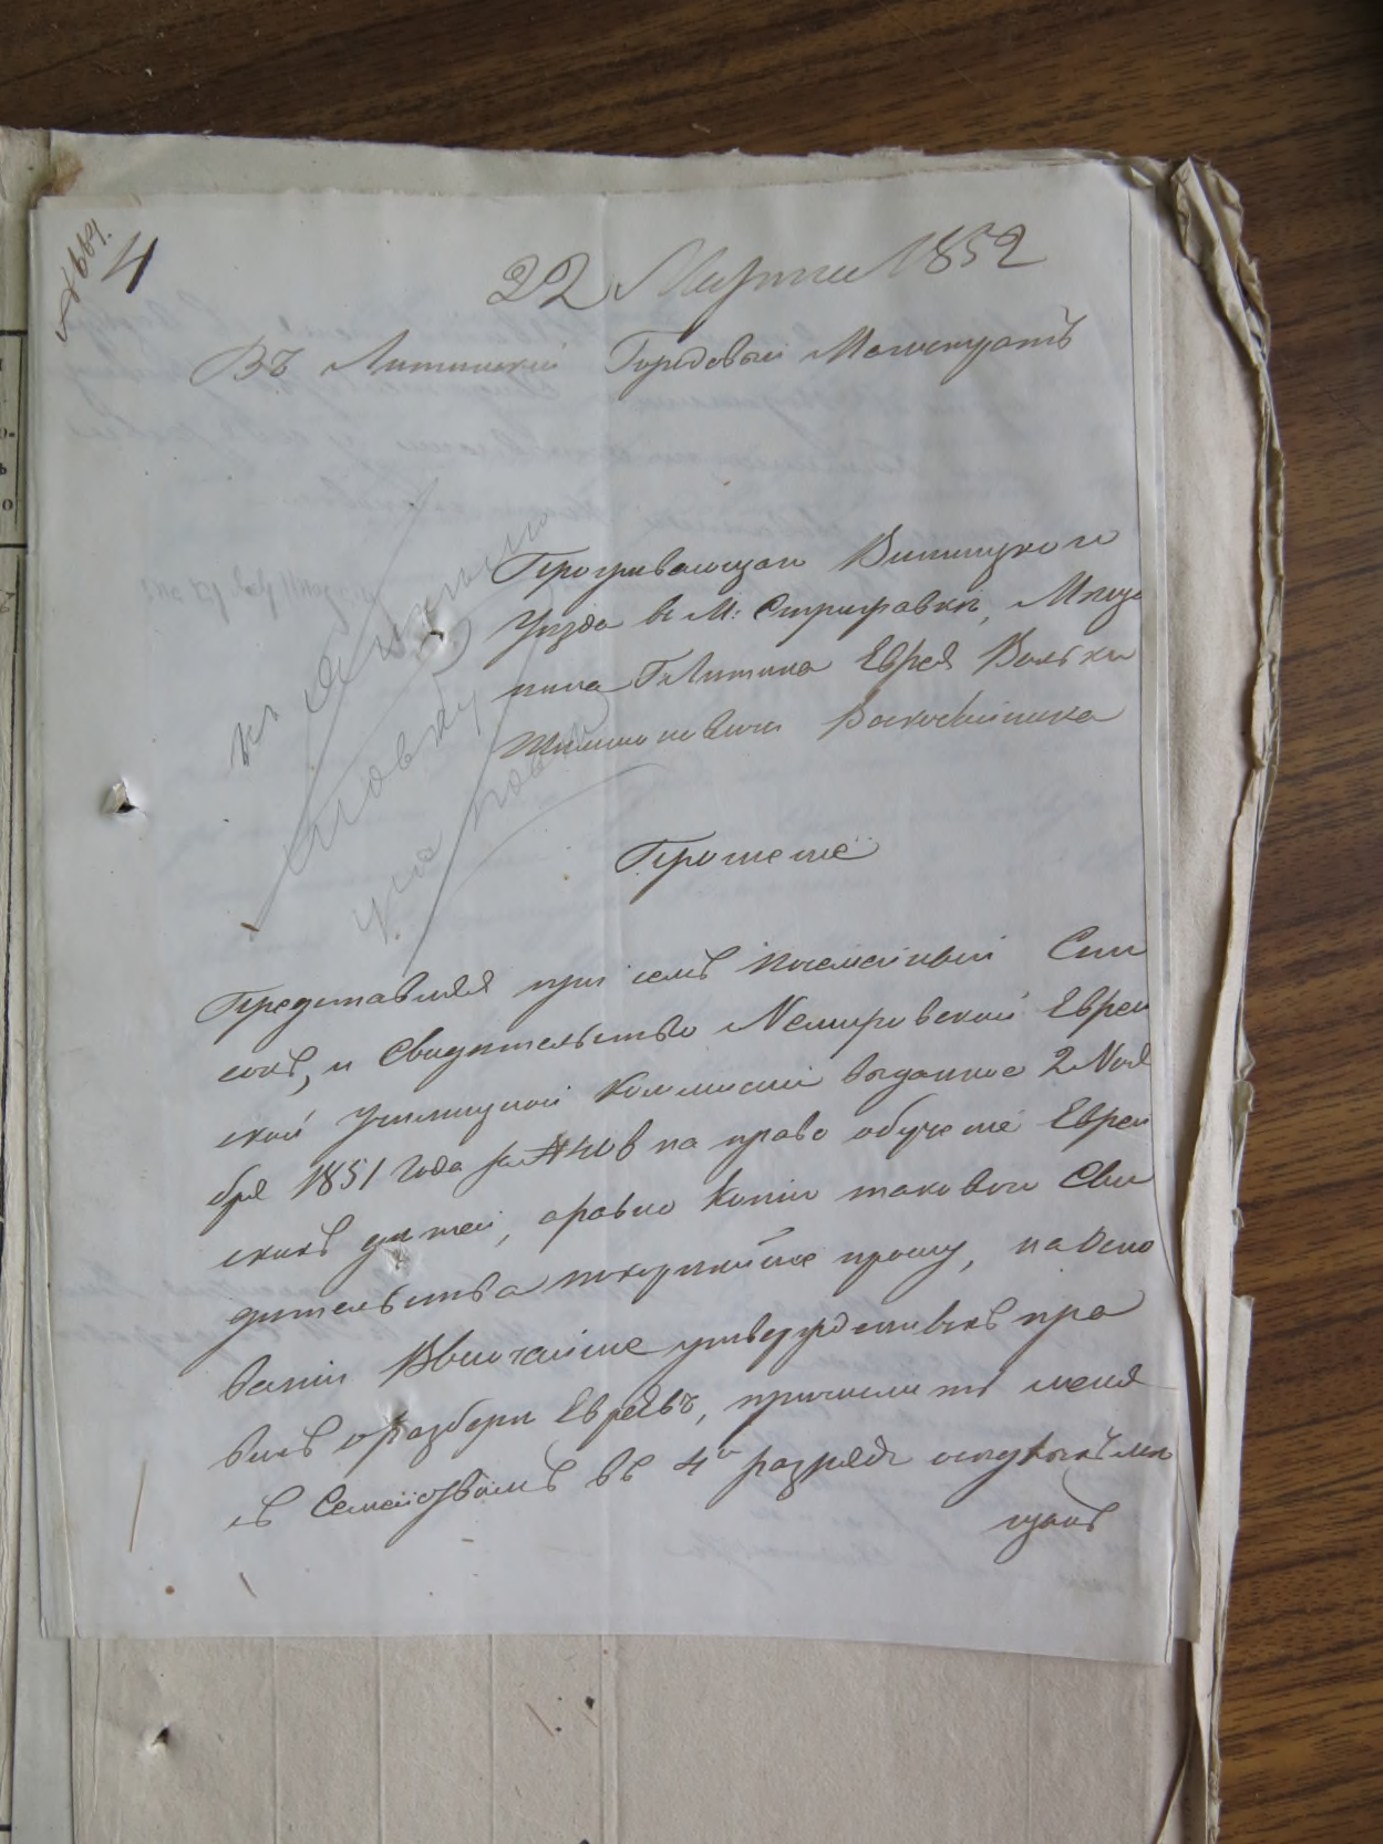 4
22 Марта 1852
Въ Литинскій Городовый Магистратъ
Проживающаго Винницкого
Уѣзда въ М: Стрижавкѣ, Мѣща
нина Г. Литина Еврея Вольки
Шлиомовича Воскобойника
Прошеніе
Представляя при семъ посемейный Спи
сокъ, и Свидѣтельство Немировской Еврей
ской Училищной Коммисіи выданное 2 Ноя
бря 1851 года за № на право обученіе Еврей
скихъ дѣтей, аравно копіи таковой Сви
дѣтельства покорнѣйше прошу, на Осно
ваніи Высочайше утвержденныхъ пра
вилъ о разборѣ Евреевъ, причислить меня
съ Семействомъ въ 4й разрядъ осѣдлыхъ мѣ
щанъ